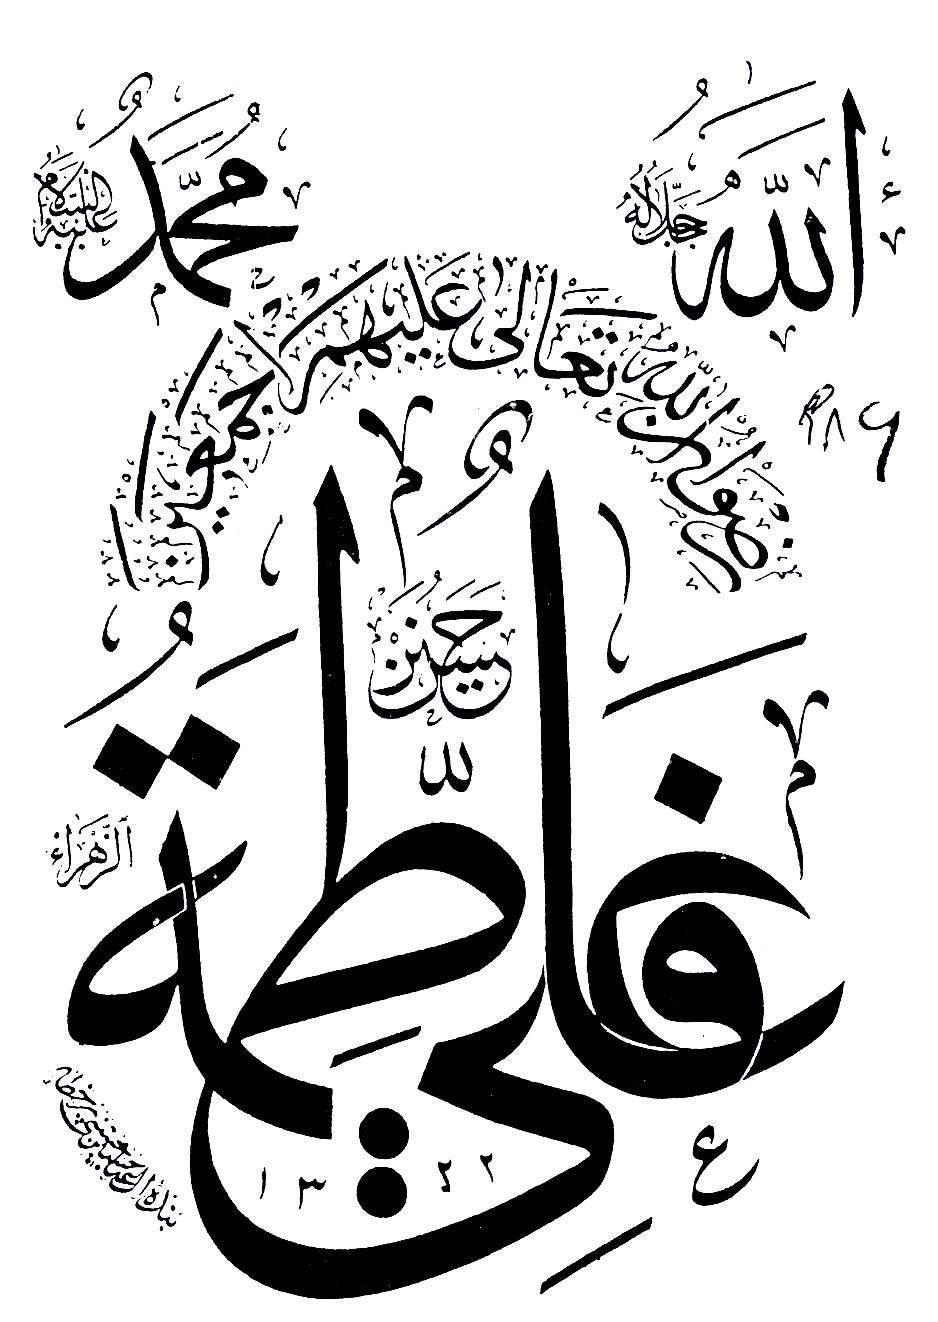 الله جل جلاله
محمد عليه السلام
رضوان الله تعالى عليهم اجمعين
حسن حسين
علي
فاطمة
الزهراء
١٣٢٢